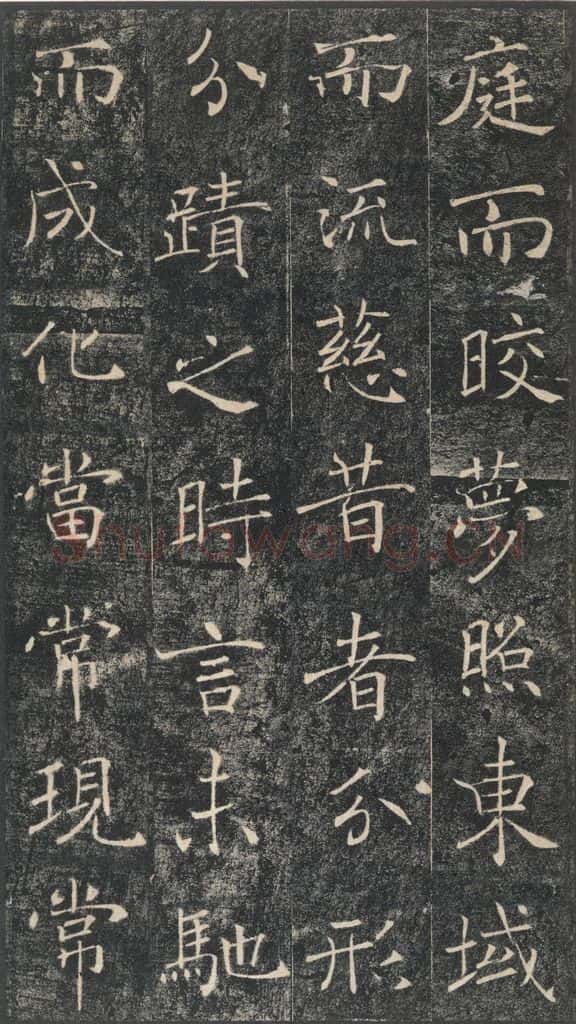 庭而皎夢照東域
而流慈昔者分形
分蹟之時言未馳
而成化當常現常
shufawang.cn